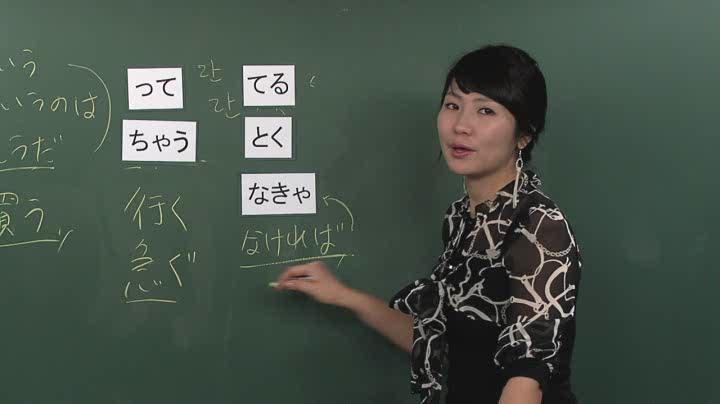 いう
いうのは
うだ
買う
って
ちゃう
行く
急ぐ
간
간
てる
とく
なきゃ
なければ